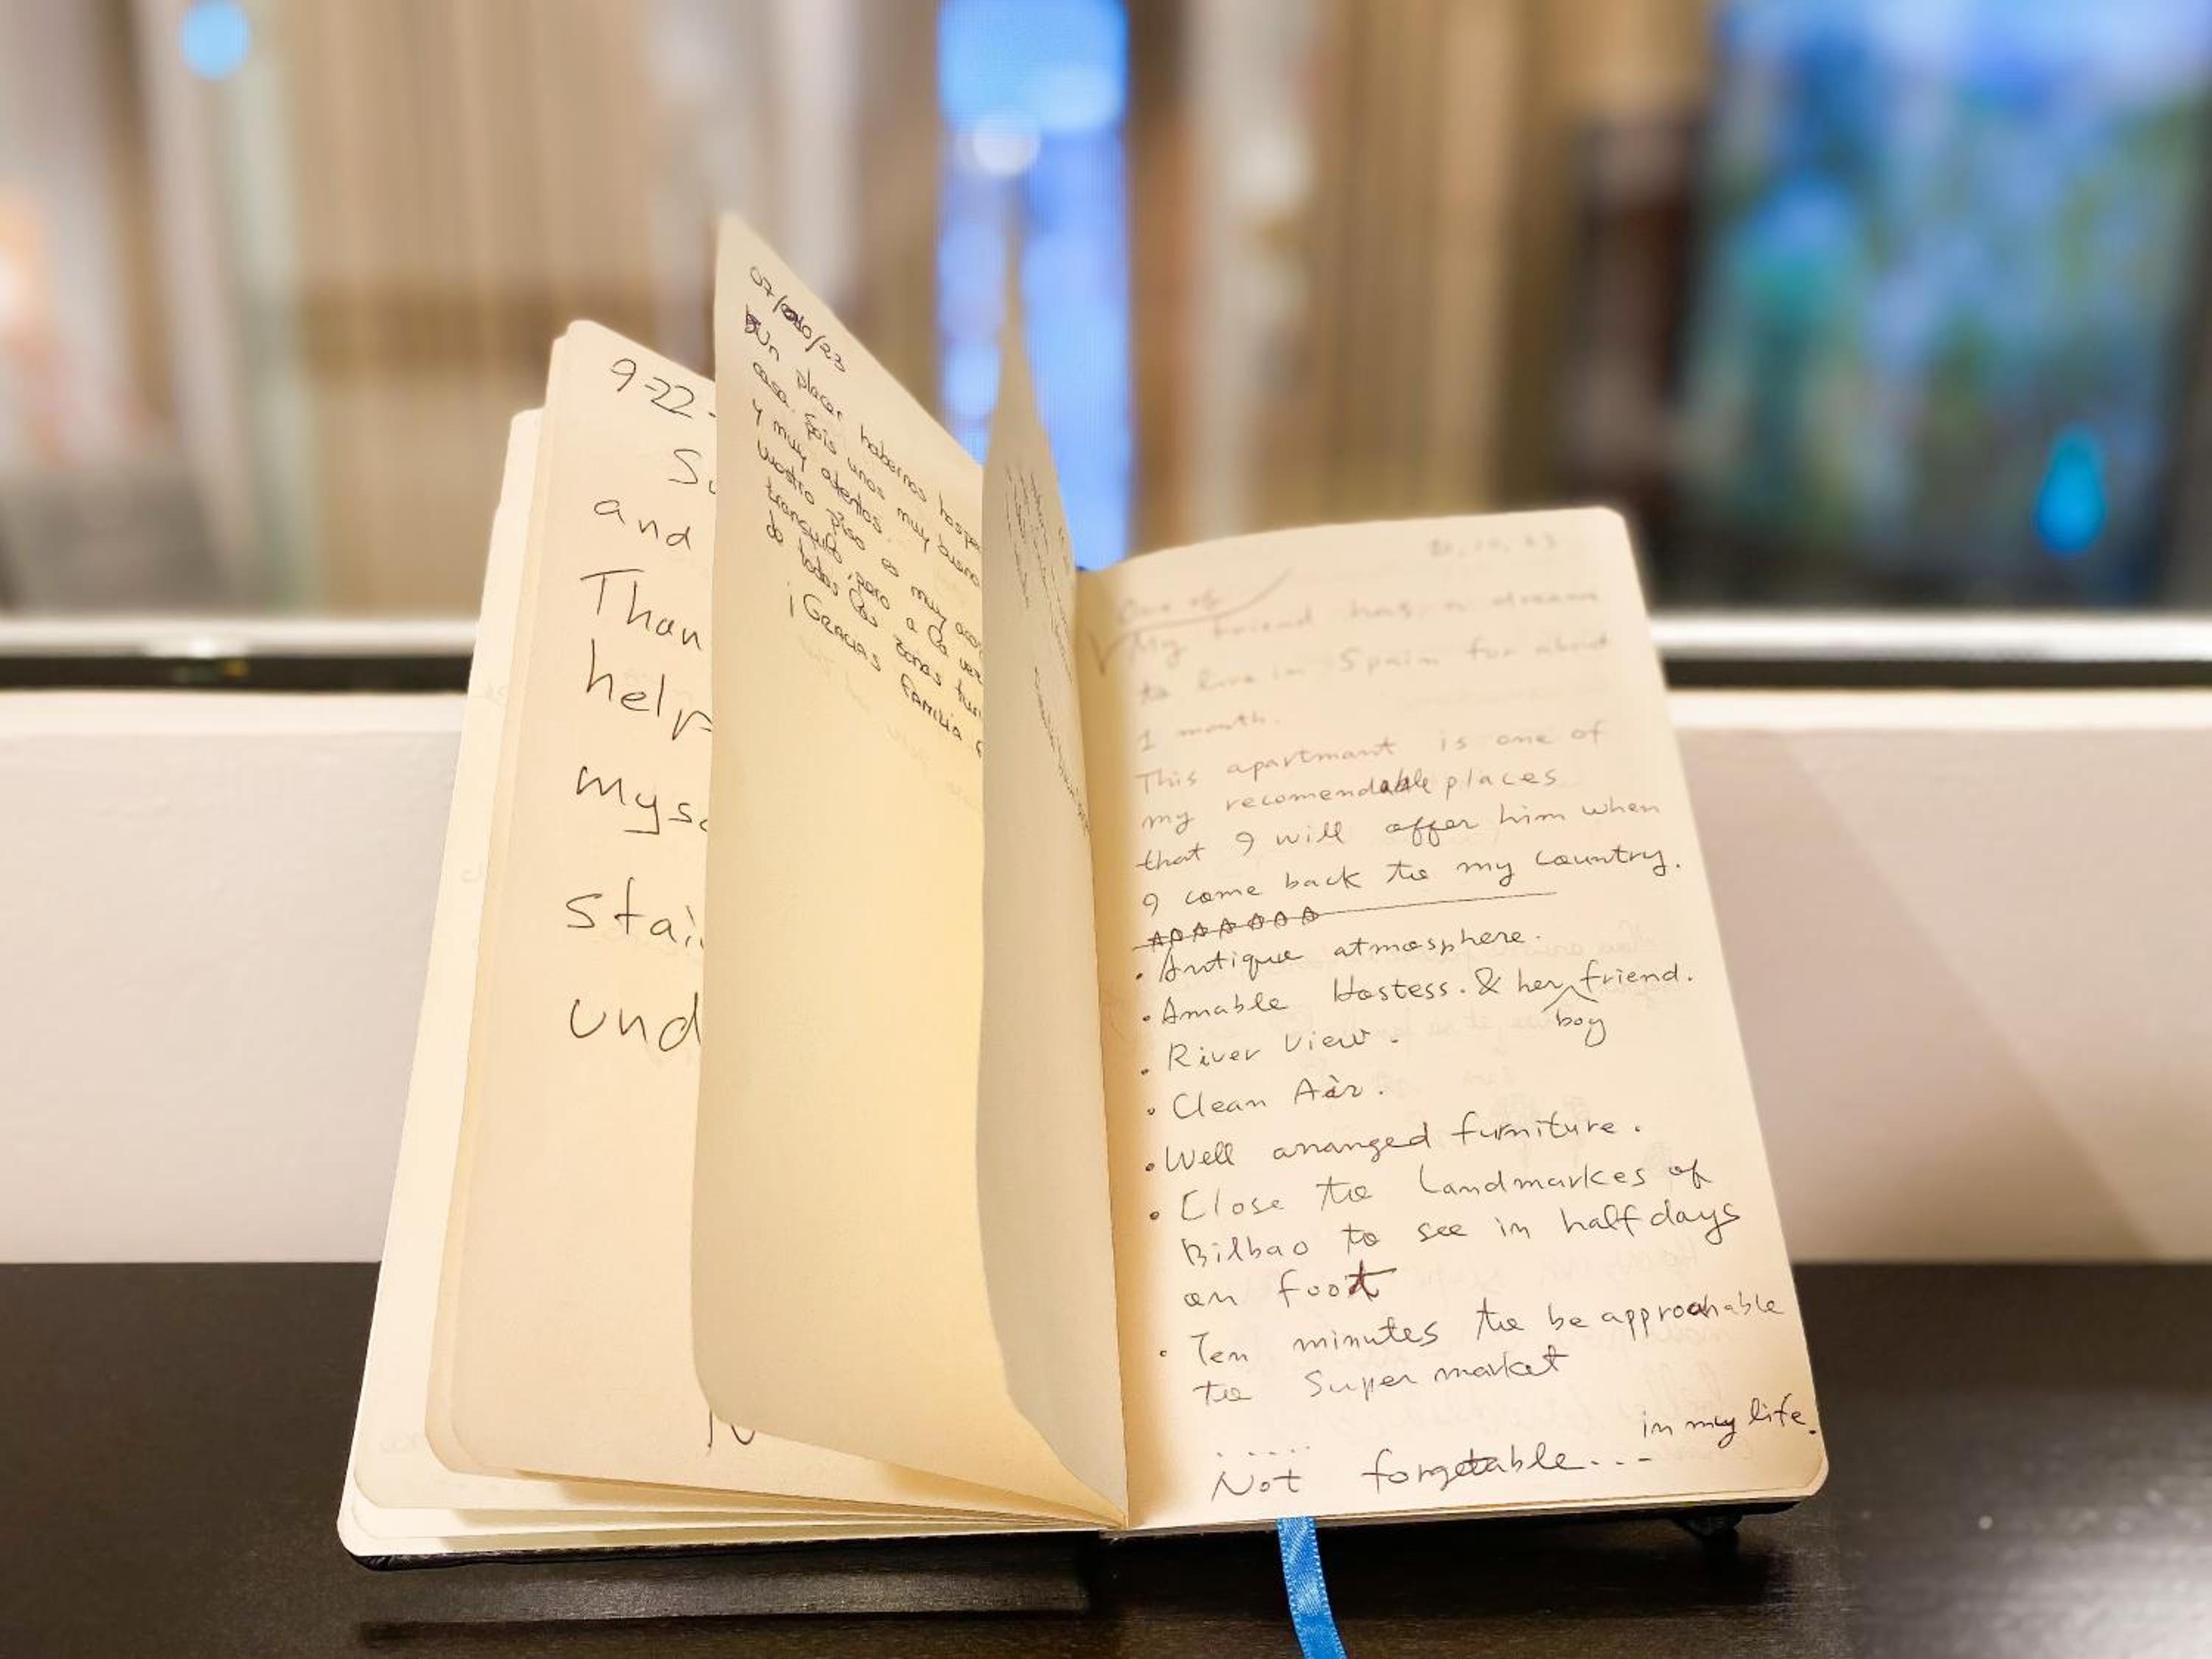 9-22-
and
Than
help
mys
stai
und
07/10/23
Un placer habernos hospe
casa. Sois unos muy bueno
y muy atentos.
vuestro piso es muy aco
tranquilo, pero a la vez
de todas las zonas turi
¡GRACIAS FAMILIA
One of
My friend has a dream
to live in Spain for about
1 month.
This apartmant is one of
my recomendable places
that I will offer him when
I come back to my country.
• Antique atmosphere.
• Amable Hostess. & her friend.
boy
• River View.
• Clean Air.
• Well arranged furniture.
• Close to Landmarkes of
Bilbao to see in half days
on foot
• Ten minutes to be approachable
to Super market
in my life.
.....
Not forgetable...-